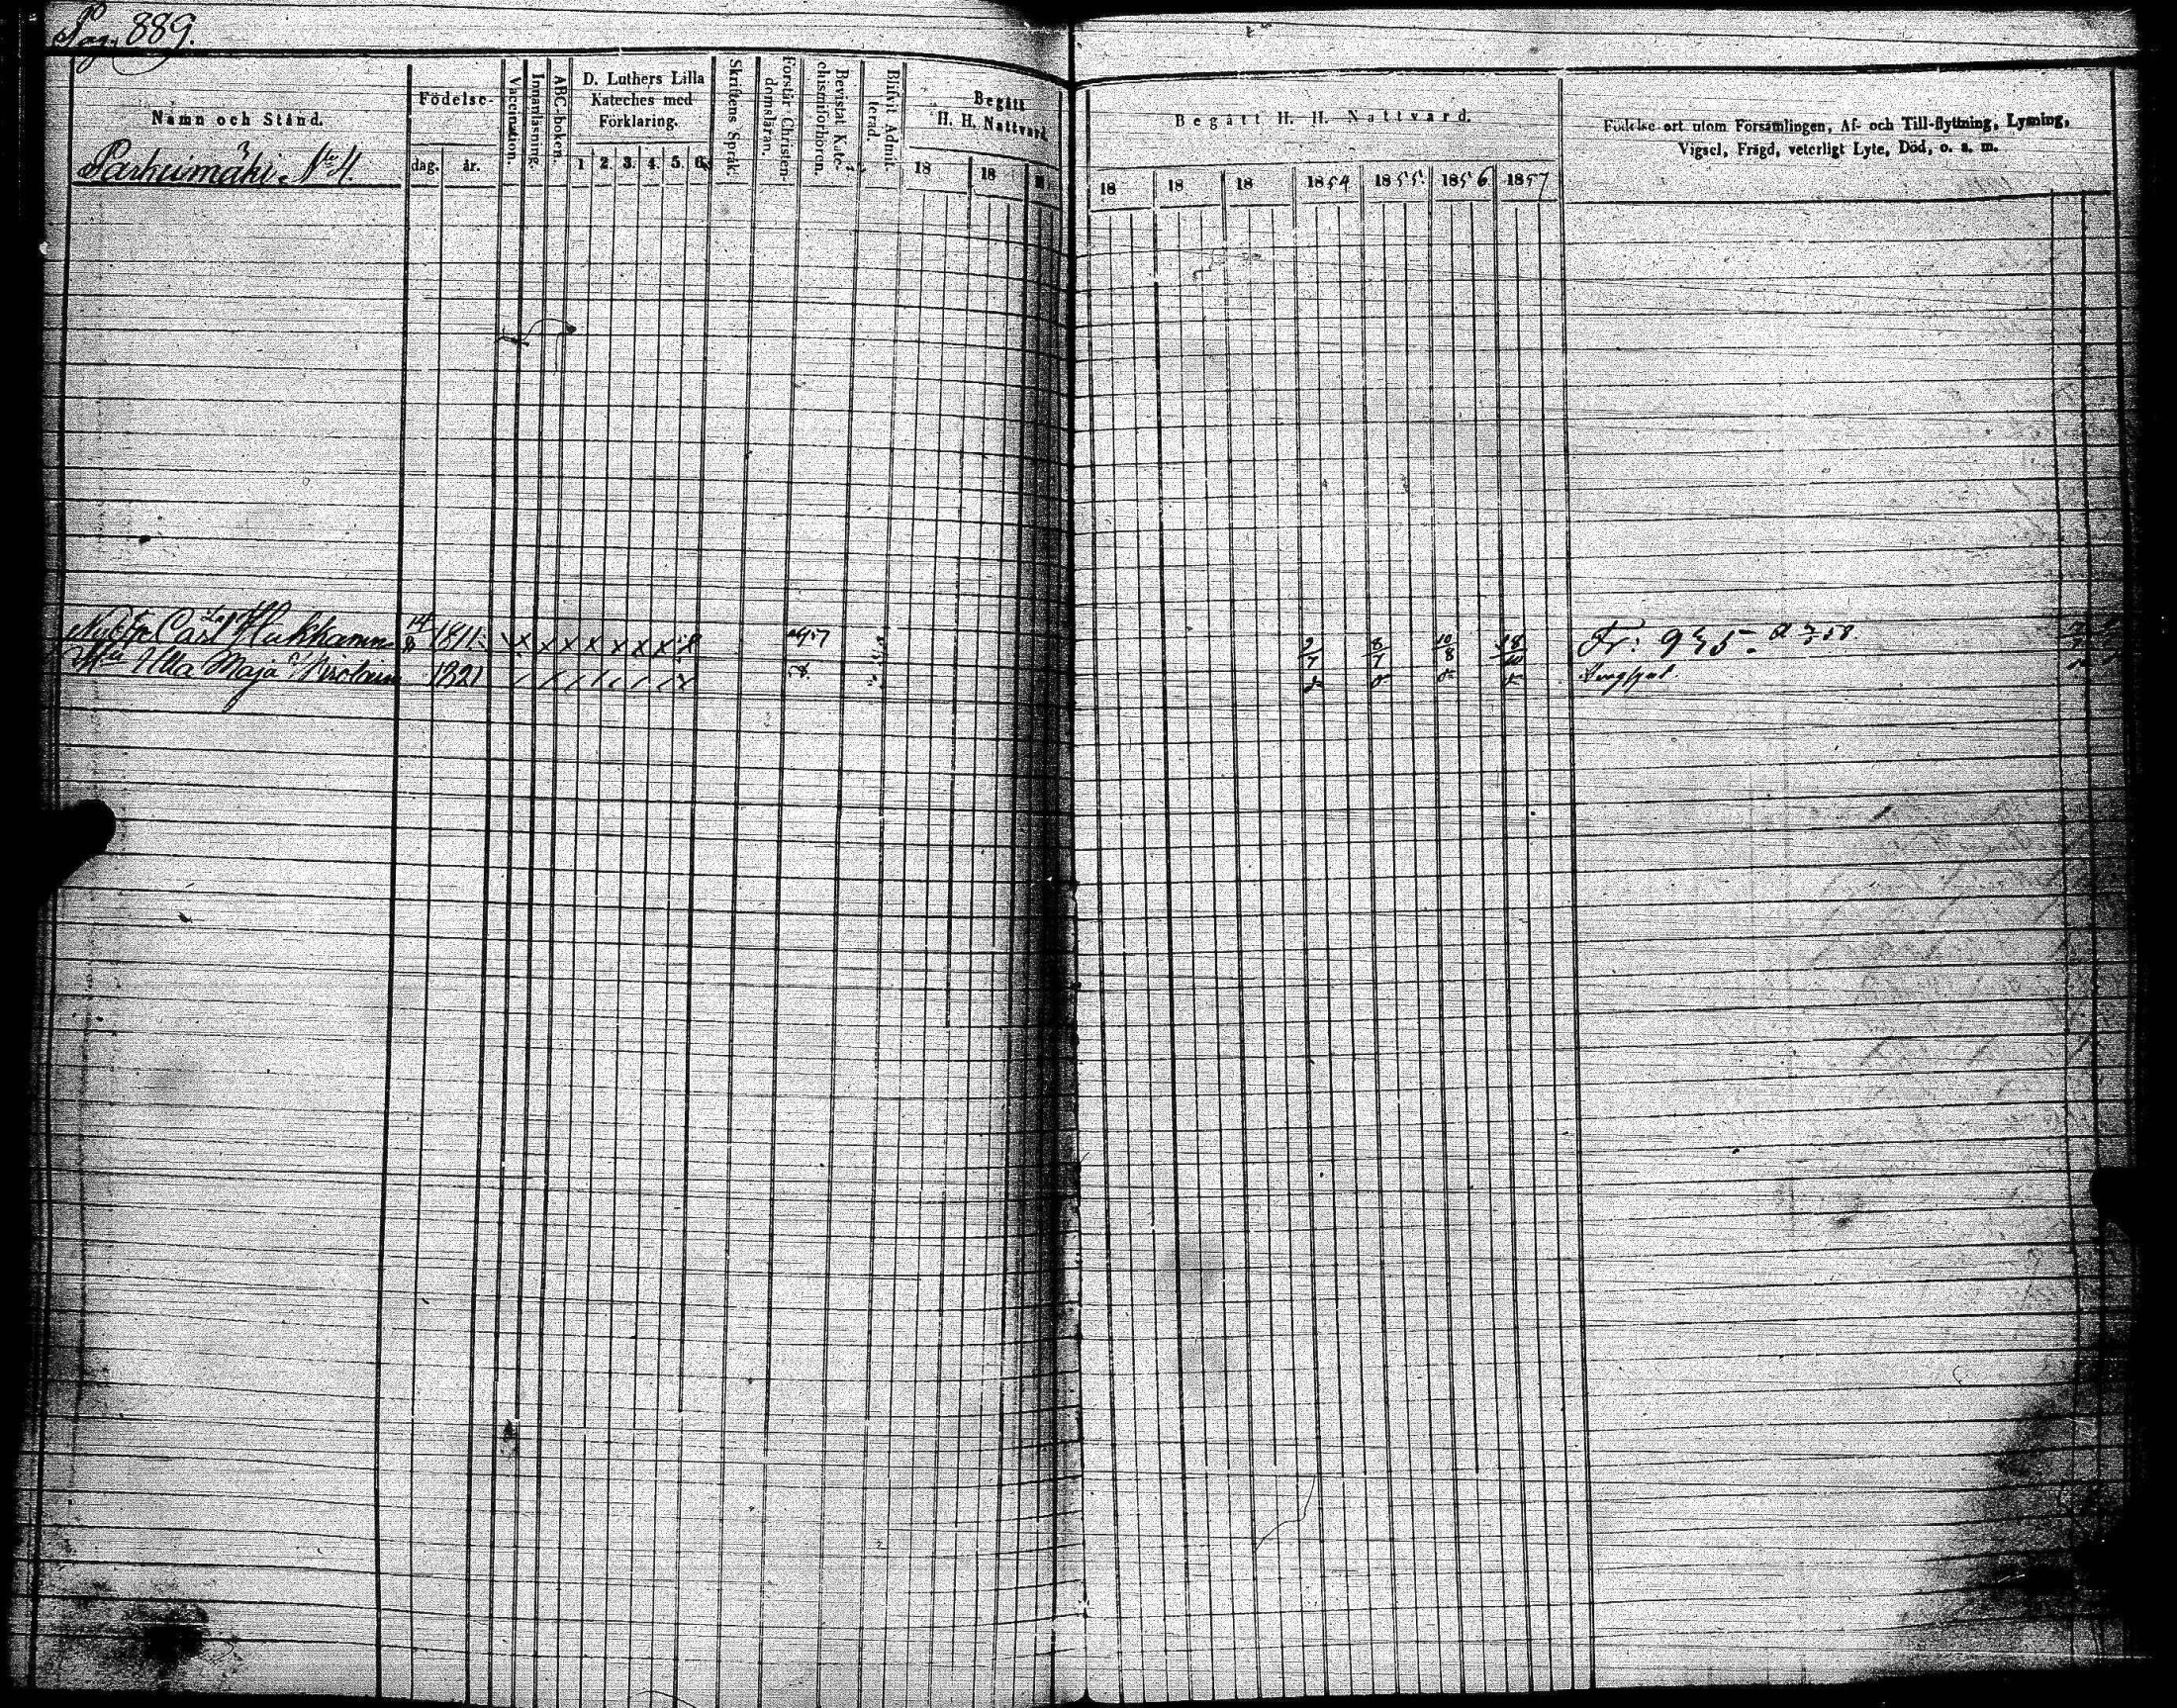 Pag. 889.
Namn och Stånd.
Parkuimäki No 4.
Födelse-
dag. år.
Vaccination.
Innanläsning.
ABC-boken.
D. Luthers Lilla
Kateches med
Förklaring.
1 2. 3. 4. 5. 6.
Skriftens Språk.
Förstår Christen-
domsläran.
Bevistat Kate-
chismiförhören.
Blifvit Admit-
terad.
Begått
H. H. Nattvard
18 18 18
Begått H. H. Nattvard.
18 18 18 1854 1855. 1856 1857
Födelse-ort utom Församlingen, Af- och Till-flyttning, Lysning,
Vigsel, Frägd, veterligt Lyte, Död, o. s. m.
Carl 14/8 1811. x x x x x x x x 2/7 8/7 10/8 18/10 Fr: 935.
Ulla Maja 1821